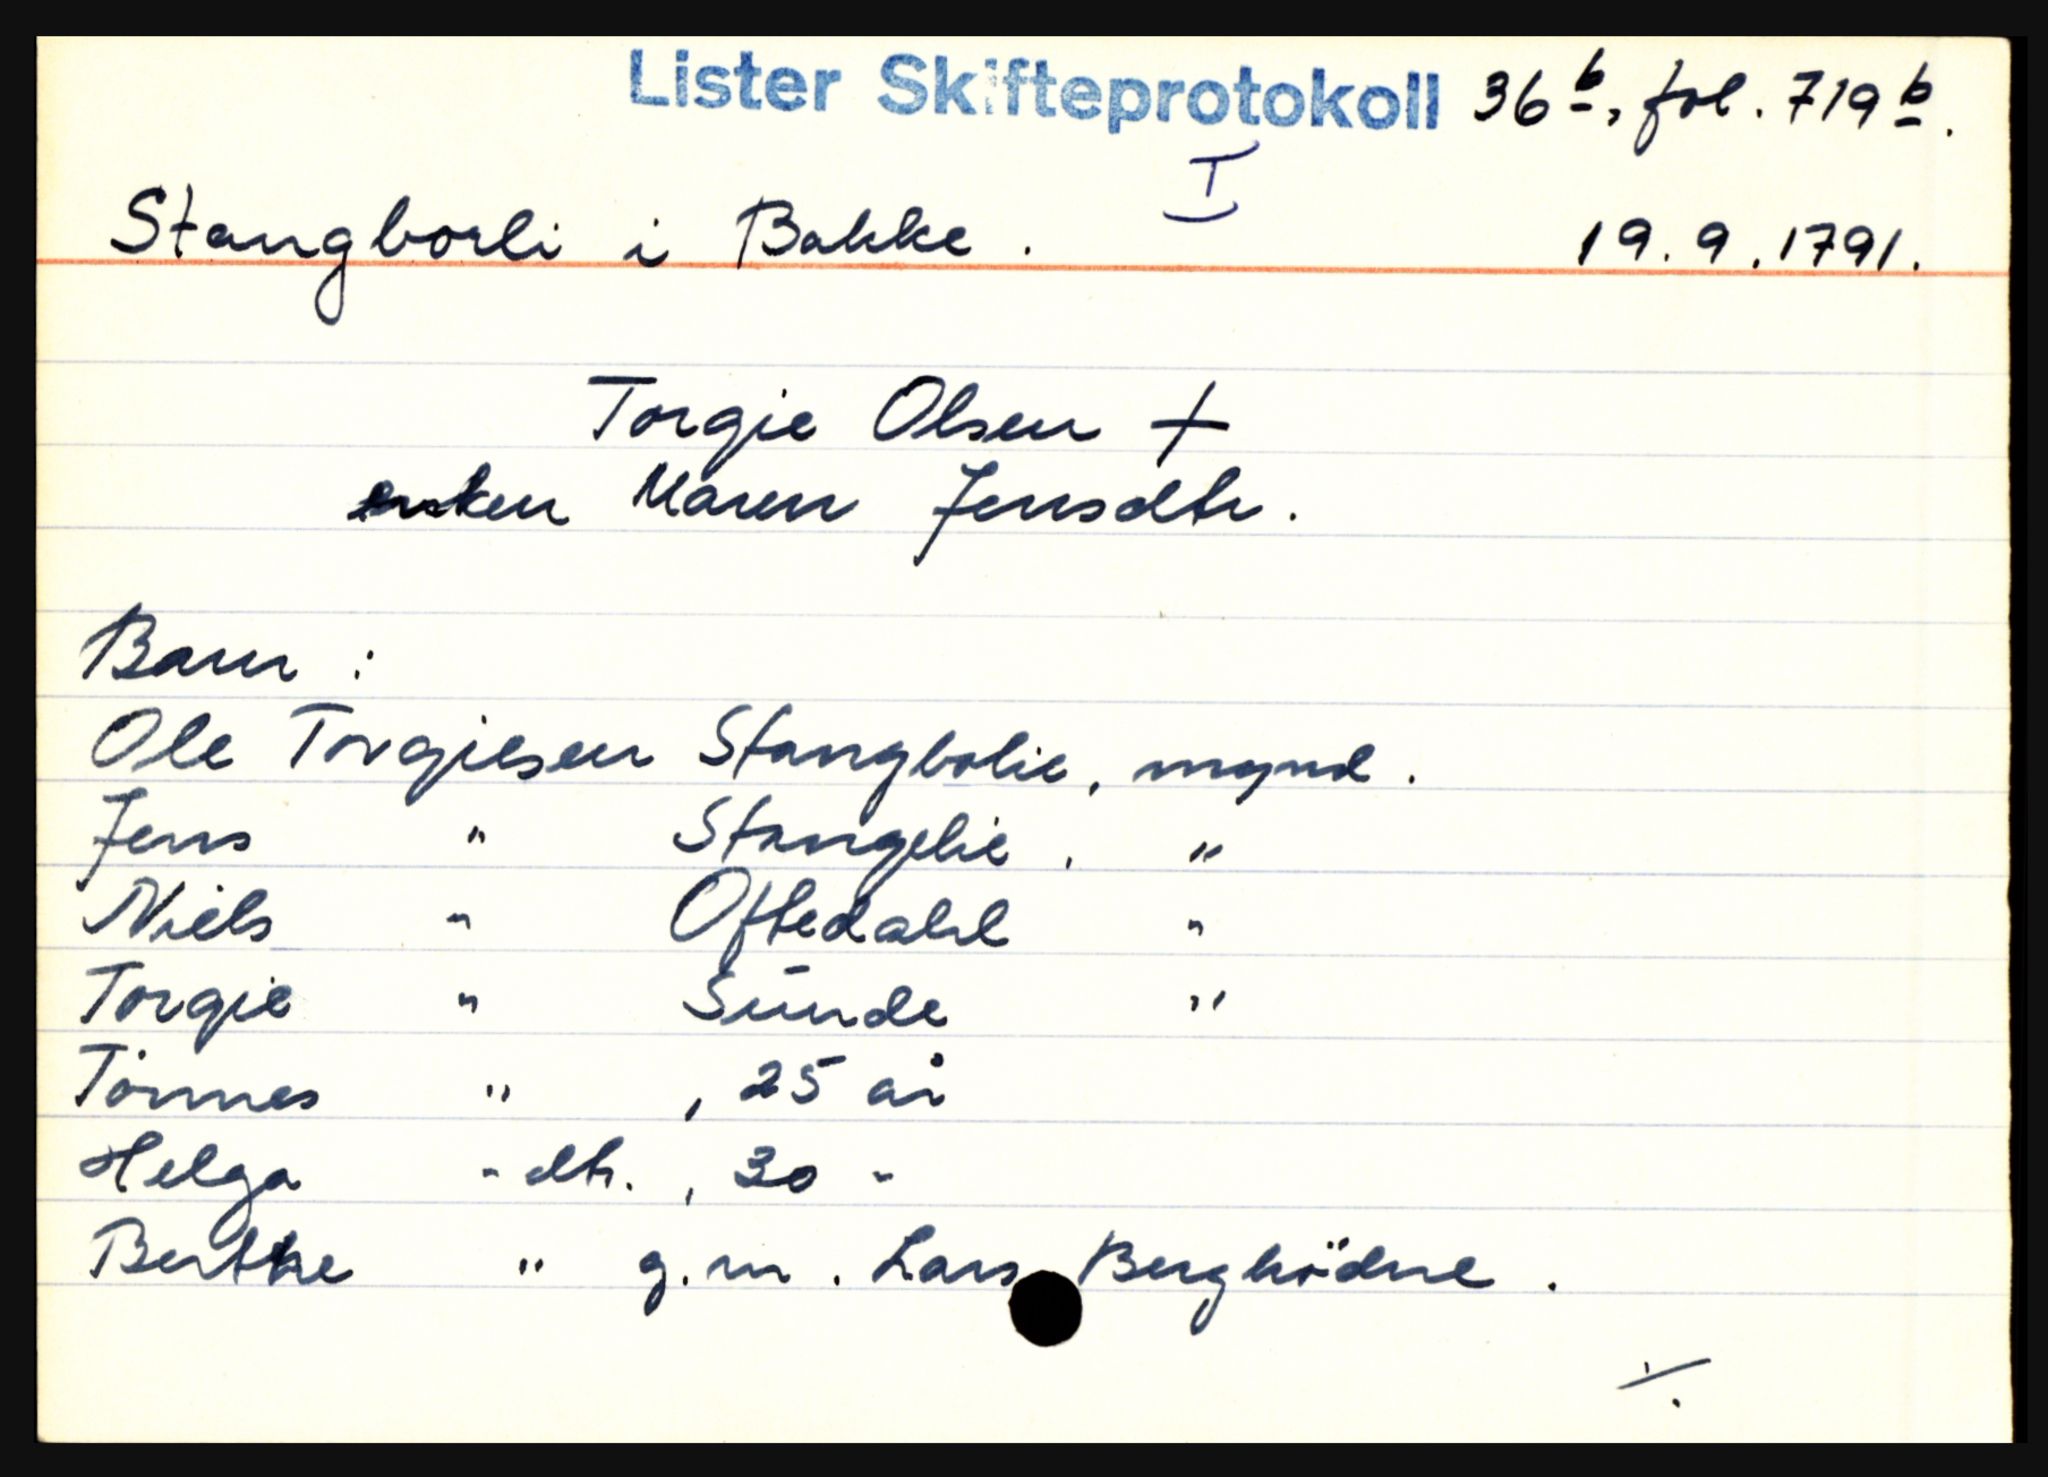 Lister Skifteprotokoll 36 b, fol. 719 b.
I
Stangborli i Bakke. 19.9.1791.
Torgie Olsen +
enken Maren Jensdtr.
Barn:
Ole Torgiesen Stangbolie, mynd.
Jens " Stangelie, "
Niels " Oftedahl "
Torgie " Sunde "
Tönnes ", 25 år
Helga " dtr., 30 "
Berthe " g.m. Lars Berghödne.